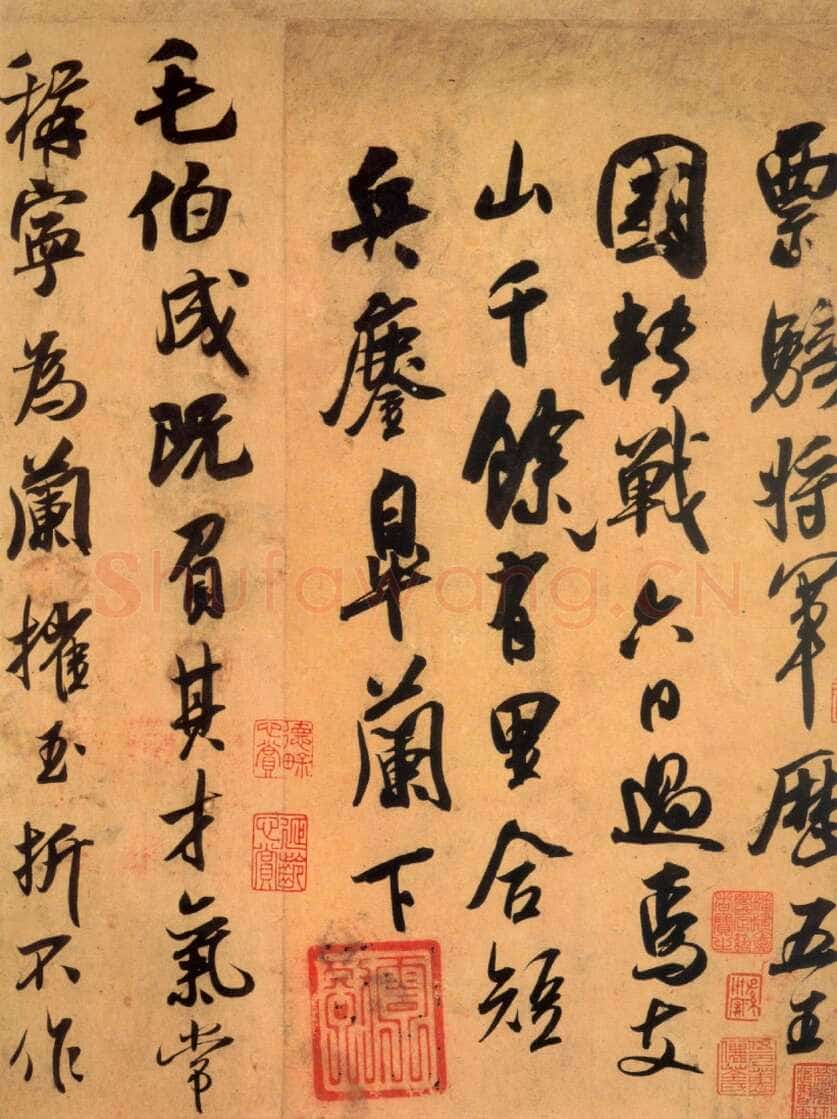 票騎將軍歷五王
國轉戰六日過焉支
山千餘有里合短
兵鏖皐蘭下
毛伯成既負其才氣常
稱寧為蘭摧玉折不作
Shufawang.CN